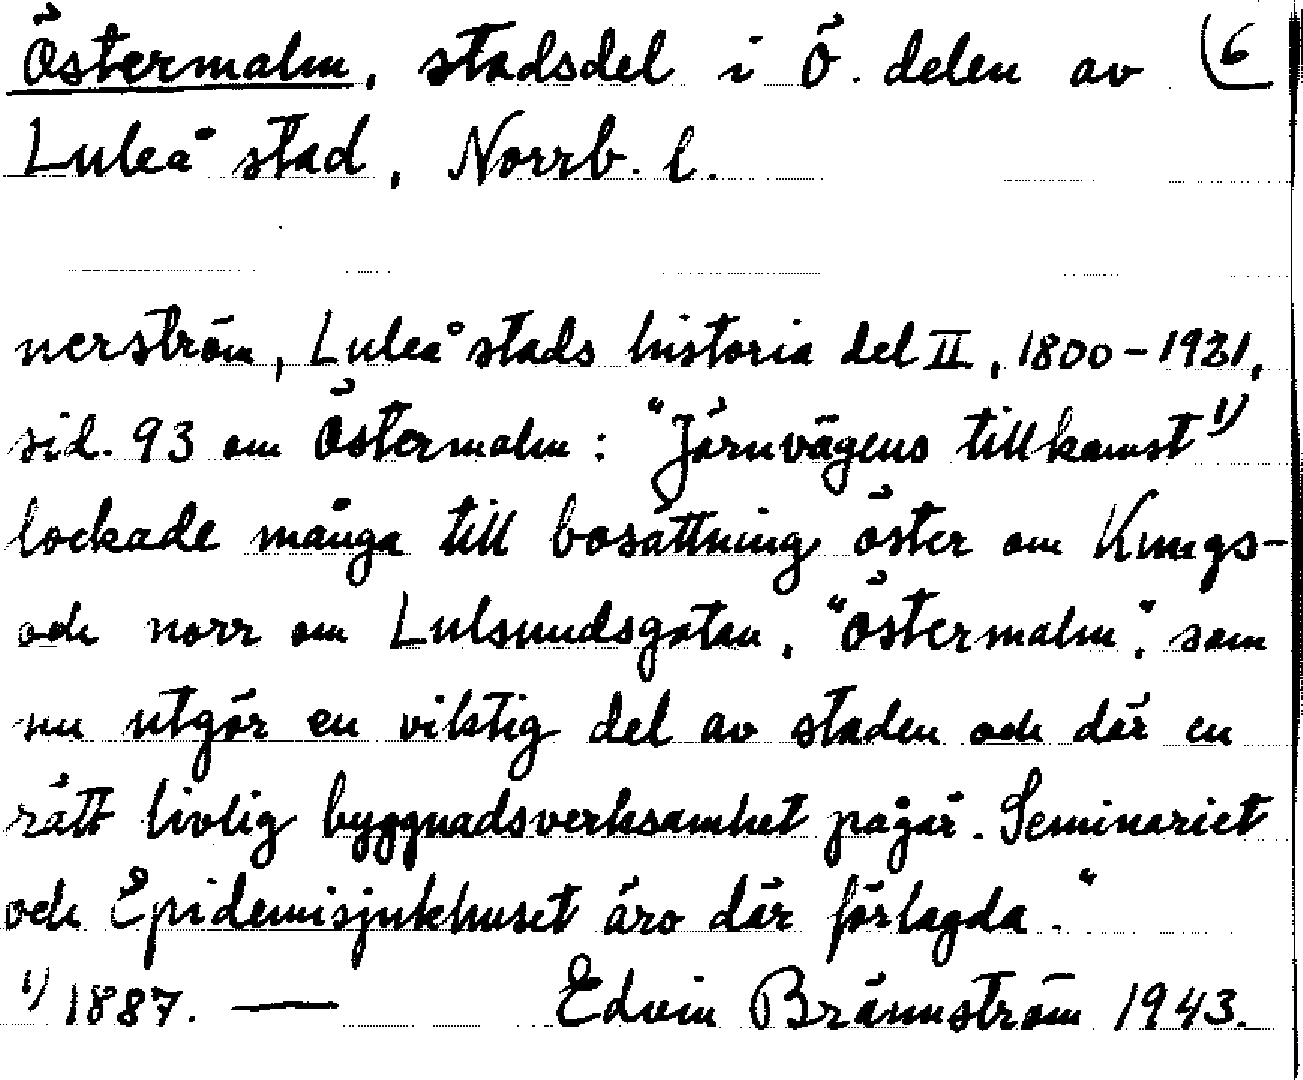 Östermalm, stadsdel i Ö. delen av (6
Luleå stad, Norrb. l.
nerström, Luleå stads historia del II, 1800-1921,
sid. 93 om Östermalm: "Järnvägens tillkomst 1)
lockade många till bosättning öster om Kungs-
och norr om Lulsundsgatan, "Östermalm", som
nu utgör en viktig del av staden och där en
rätt livlig byggnadsverksamhet pågår. Seminariet
och Epidemisjukhuset äro där förlagda."
1) 1887. — Edvin Brännström 1943.